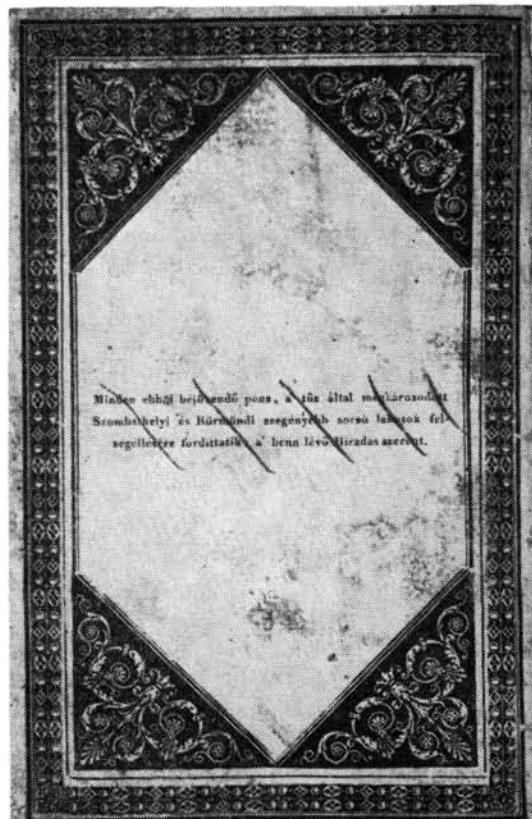 Minden ebből bejövendő penz, a' tűz által megkározodott
Szombathelyi és Körmöndi szegényebb sorsú lakosok fel-
segellesére fordittatik a' benn lévő Hiradas szerent.